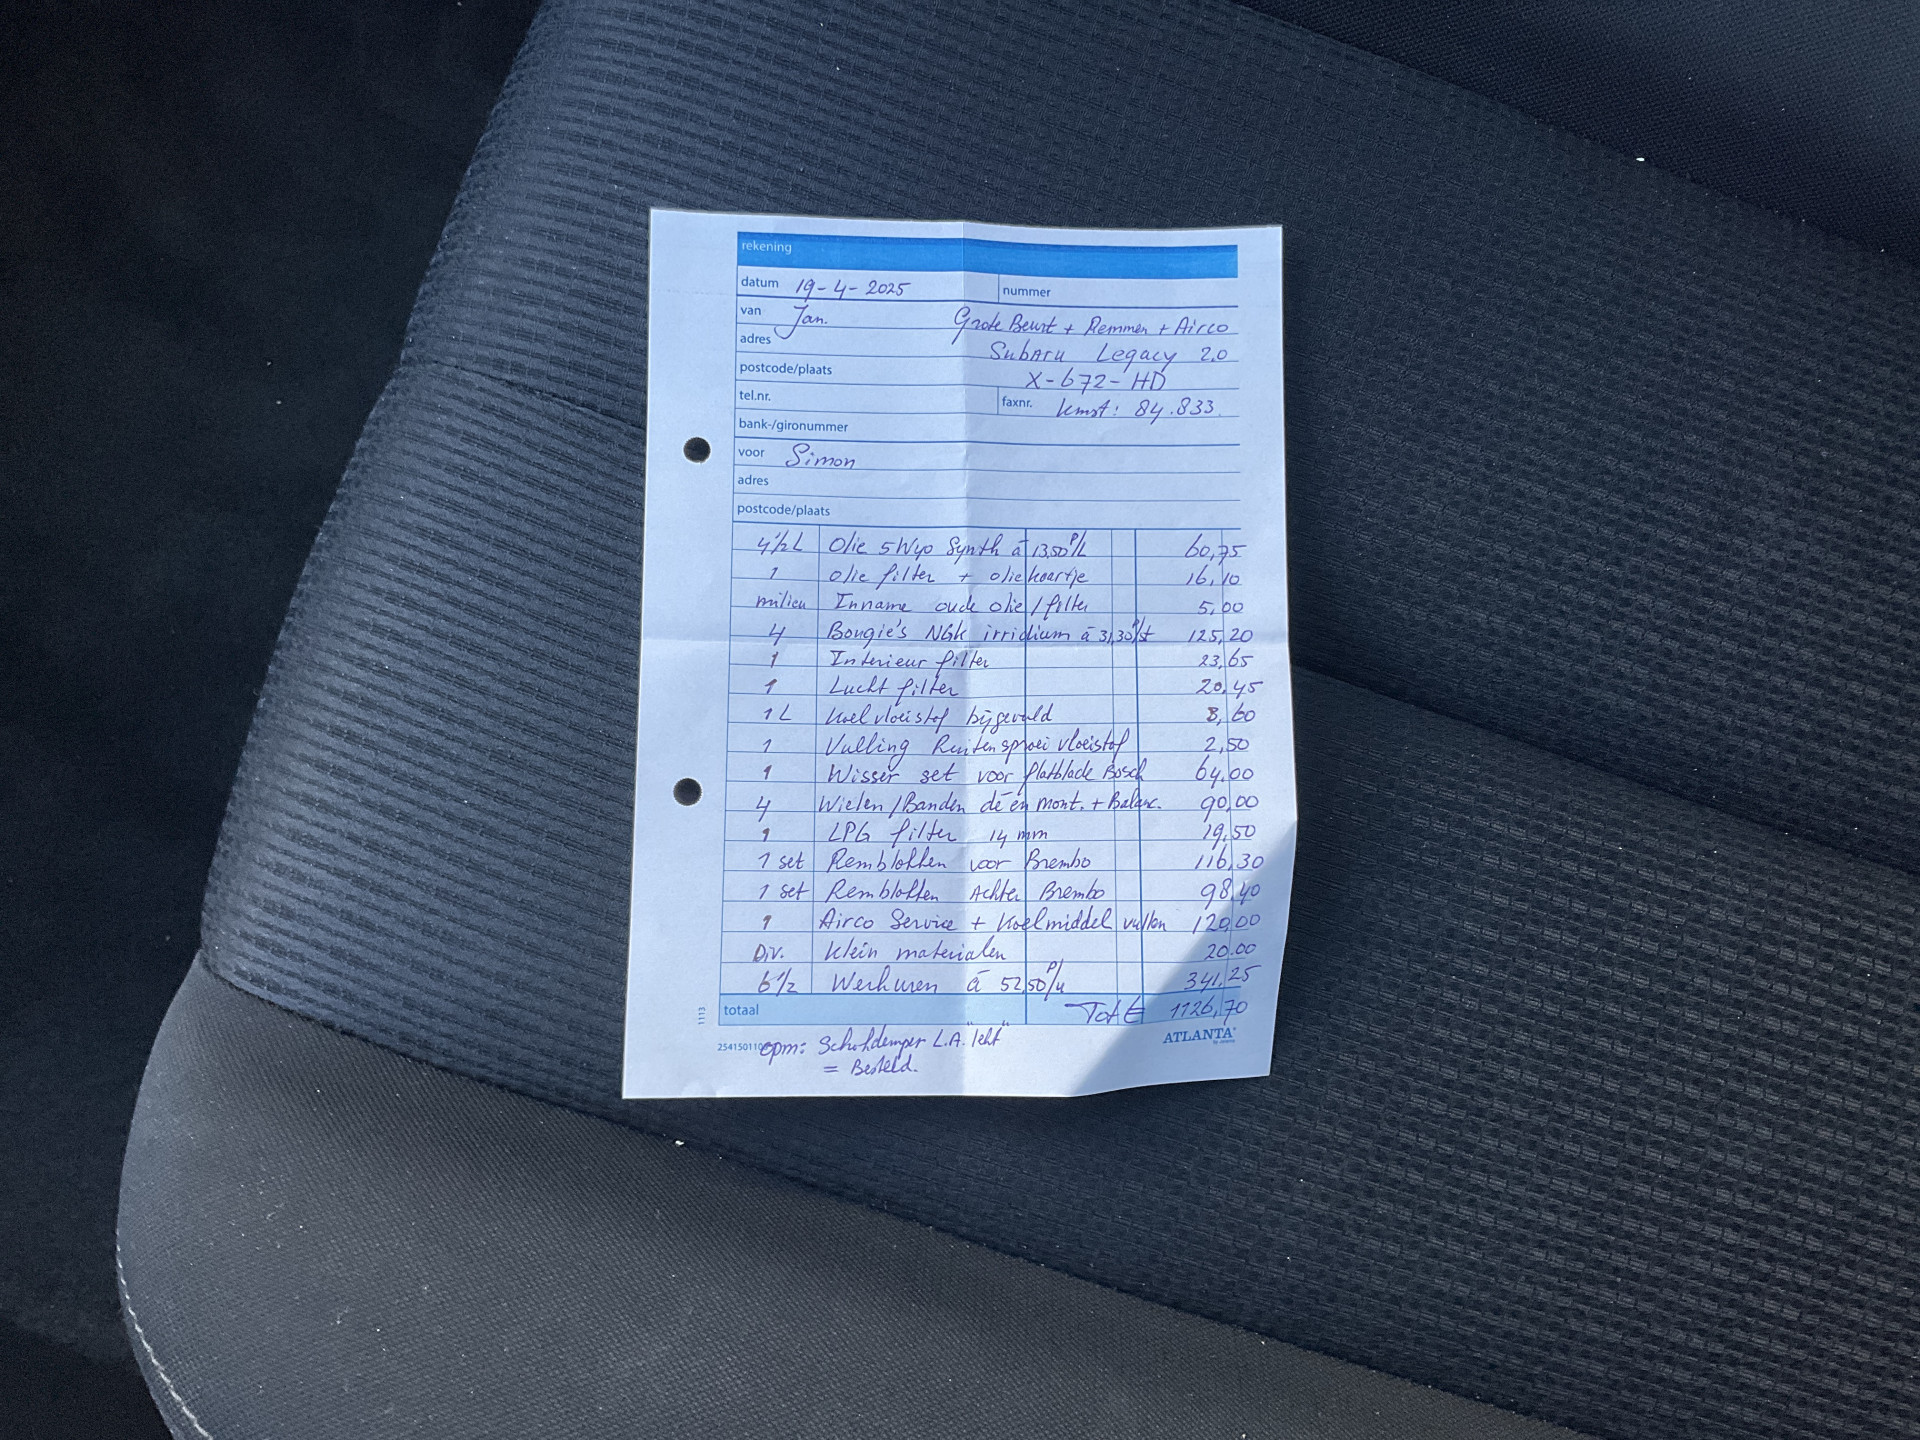 rekening
datum 19-4-2025 nummer
van Jan. Grote Beurt + Remmen + Airco
adres Subaru Legacy 2.0
postcode/plaats X-672-HD
tel.nr. faxnr. kmst: 84.833.
bank-/gironummer
voor Simon
adres
postcode/plaats
4½ L Olie 5W40 Synth á 13,50 P/L 60,75
1 olie filter + olie kaartje 16,10
milieu Inname oude olie/filter 5,00
4 Bougie's NGK irridium á 31,30 P/st 125,20
1 Interieur filter 23,65
1 Lucht filter 20,45
1 L Koelvloeistof bijgevuld 8,60
1 Vulling Ruitensproei vloeistof 2,50
1 Wisser set voor flatblade Bosch 64,00
4 Wielen/Banden de én mont. + Balanc. 90,00
1 LPG filter 14 mm 19,50
1 set Remblokken voor Brembo 116,30
1 set Remblokken Achter Brembo 98,40
1 Airco Service + Koelmiddel vullen 120,00
Div. Klein materialen 20.00
6½ Werkuren á 52,50 P/u 341,25
totaal Tot € 1126,70
1113
ATLANTA
opm: Schokdemper L.A. "lekt"
= Besteld.